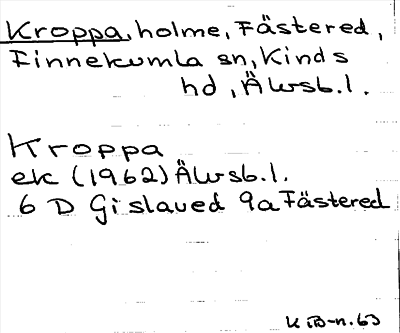 Kroppa, holme, Fästered,
Finnekumla sn, Kinds
hd, Älvsb.l.
Kroppa
ek (1962) Älvsb.l.
6 D Gislaved 9a Fästered